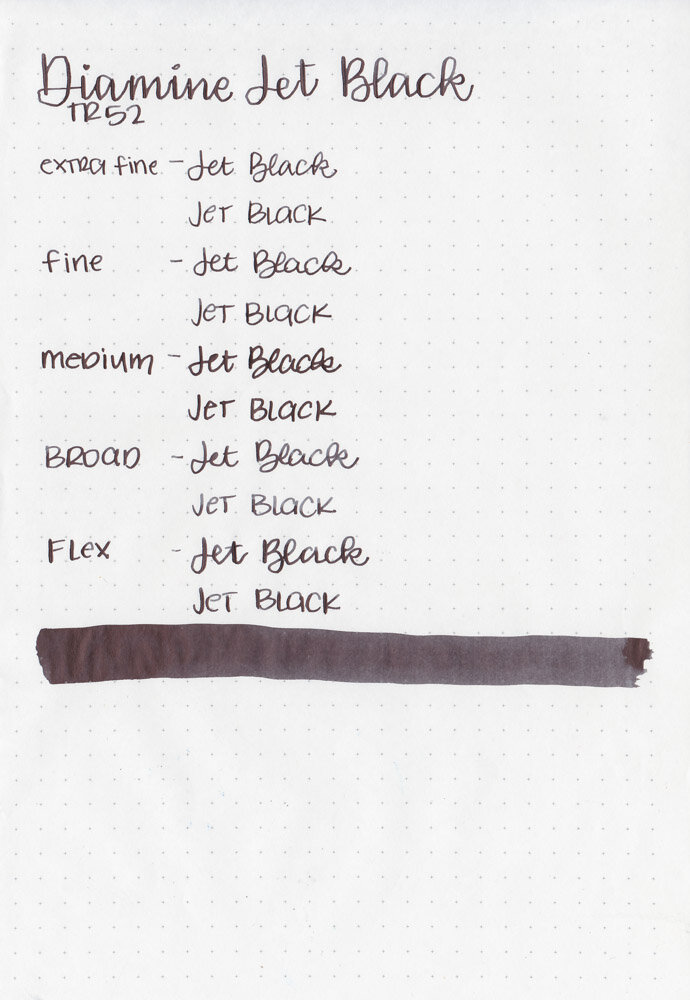 Diamine Jet Black
TR52
extra fine - Jet Black
JeT BLACK
fine - Jet Black
JeT BLACK
meDium - Jet Black
JeT BLACK
BROAD - Jet Black
JeT BLACK
FLex - Jet Black
JeT BLACK